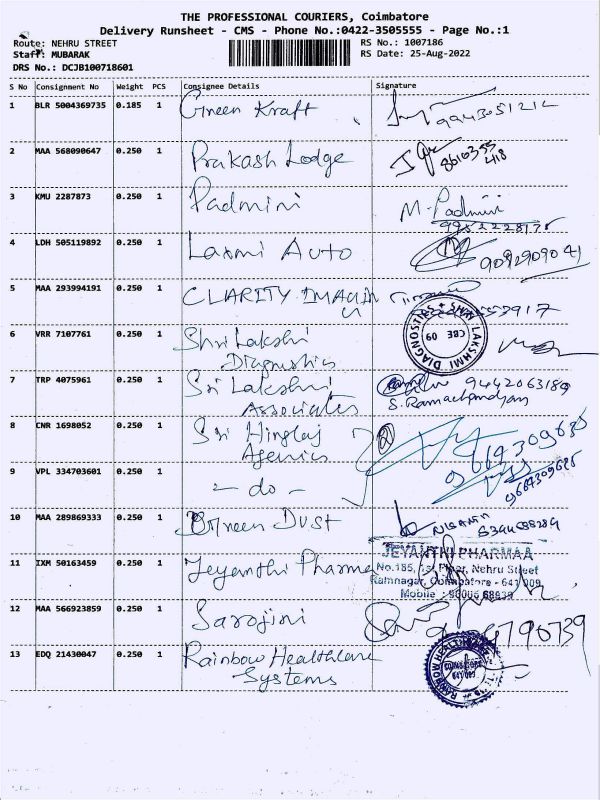 THE PROFESSIONAL COURIERS, Coimbatore
Delivery Runsheet - CMS - Phone No.:0422-3505555 - Page No.:1
Route: NEHRU STREET
RS No.: 1007186
Staff: MUBARAK
RS Date: 25-Aug-2022
DRS No.: DCJB100718601
S No Consignment No Weight PCS Consignee Details Signature
1 BLR 5004369735 0.185 1 Green Kraft 9943051212
2 MAA 568090647 0.250 1 Prakash Lodge 8610355
418
3 KMU 2287873 0.250 1 Padmini M. Padmini
4 LDH 505119892 0.250 1 Laxmi Auto 9092909041
5 MAA 293994191 0.250 1 CLARITY IMAGIN
6 VRR 7107761 0.250 1 Shri Lakshi
Diagnostics
LAKSHMI DIAGNOSTICS
CBE 09
7 TRP 4075961 0.250 1 Sri Lakshmi 9442063189
Associates S. Ramachandran
8 CNR 1698052 0.250 1 Sri Hinglaj
Agenics
9 VPL 334703601 0.250 1 - do -
10 MAA 289869333 0.250 1 Green Dust
11 IXM 50163459 0.250 1 Jeyanthi Pharma
JEYANTHI PHARMAA
No.185, 1st Floor, Nehru Street
Ramnagar, Coimbatore - 641 009.
12 MAA 566923859 0.250 1 Sarojini
13 EDQ 21430047 0.250 1 Rainbow Healthcare
Systems
COIMBATORE
641 009